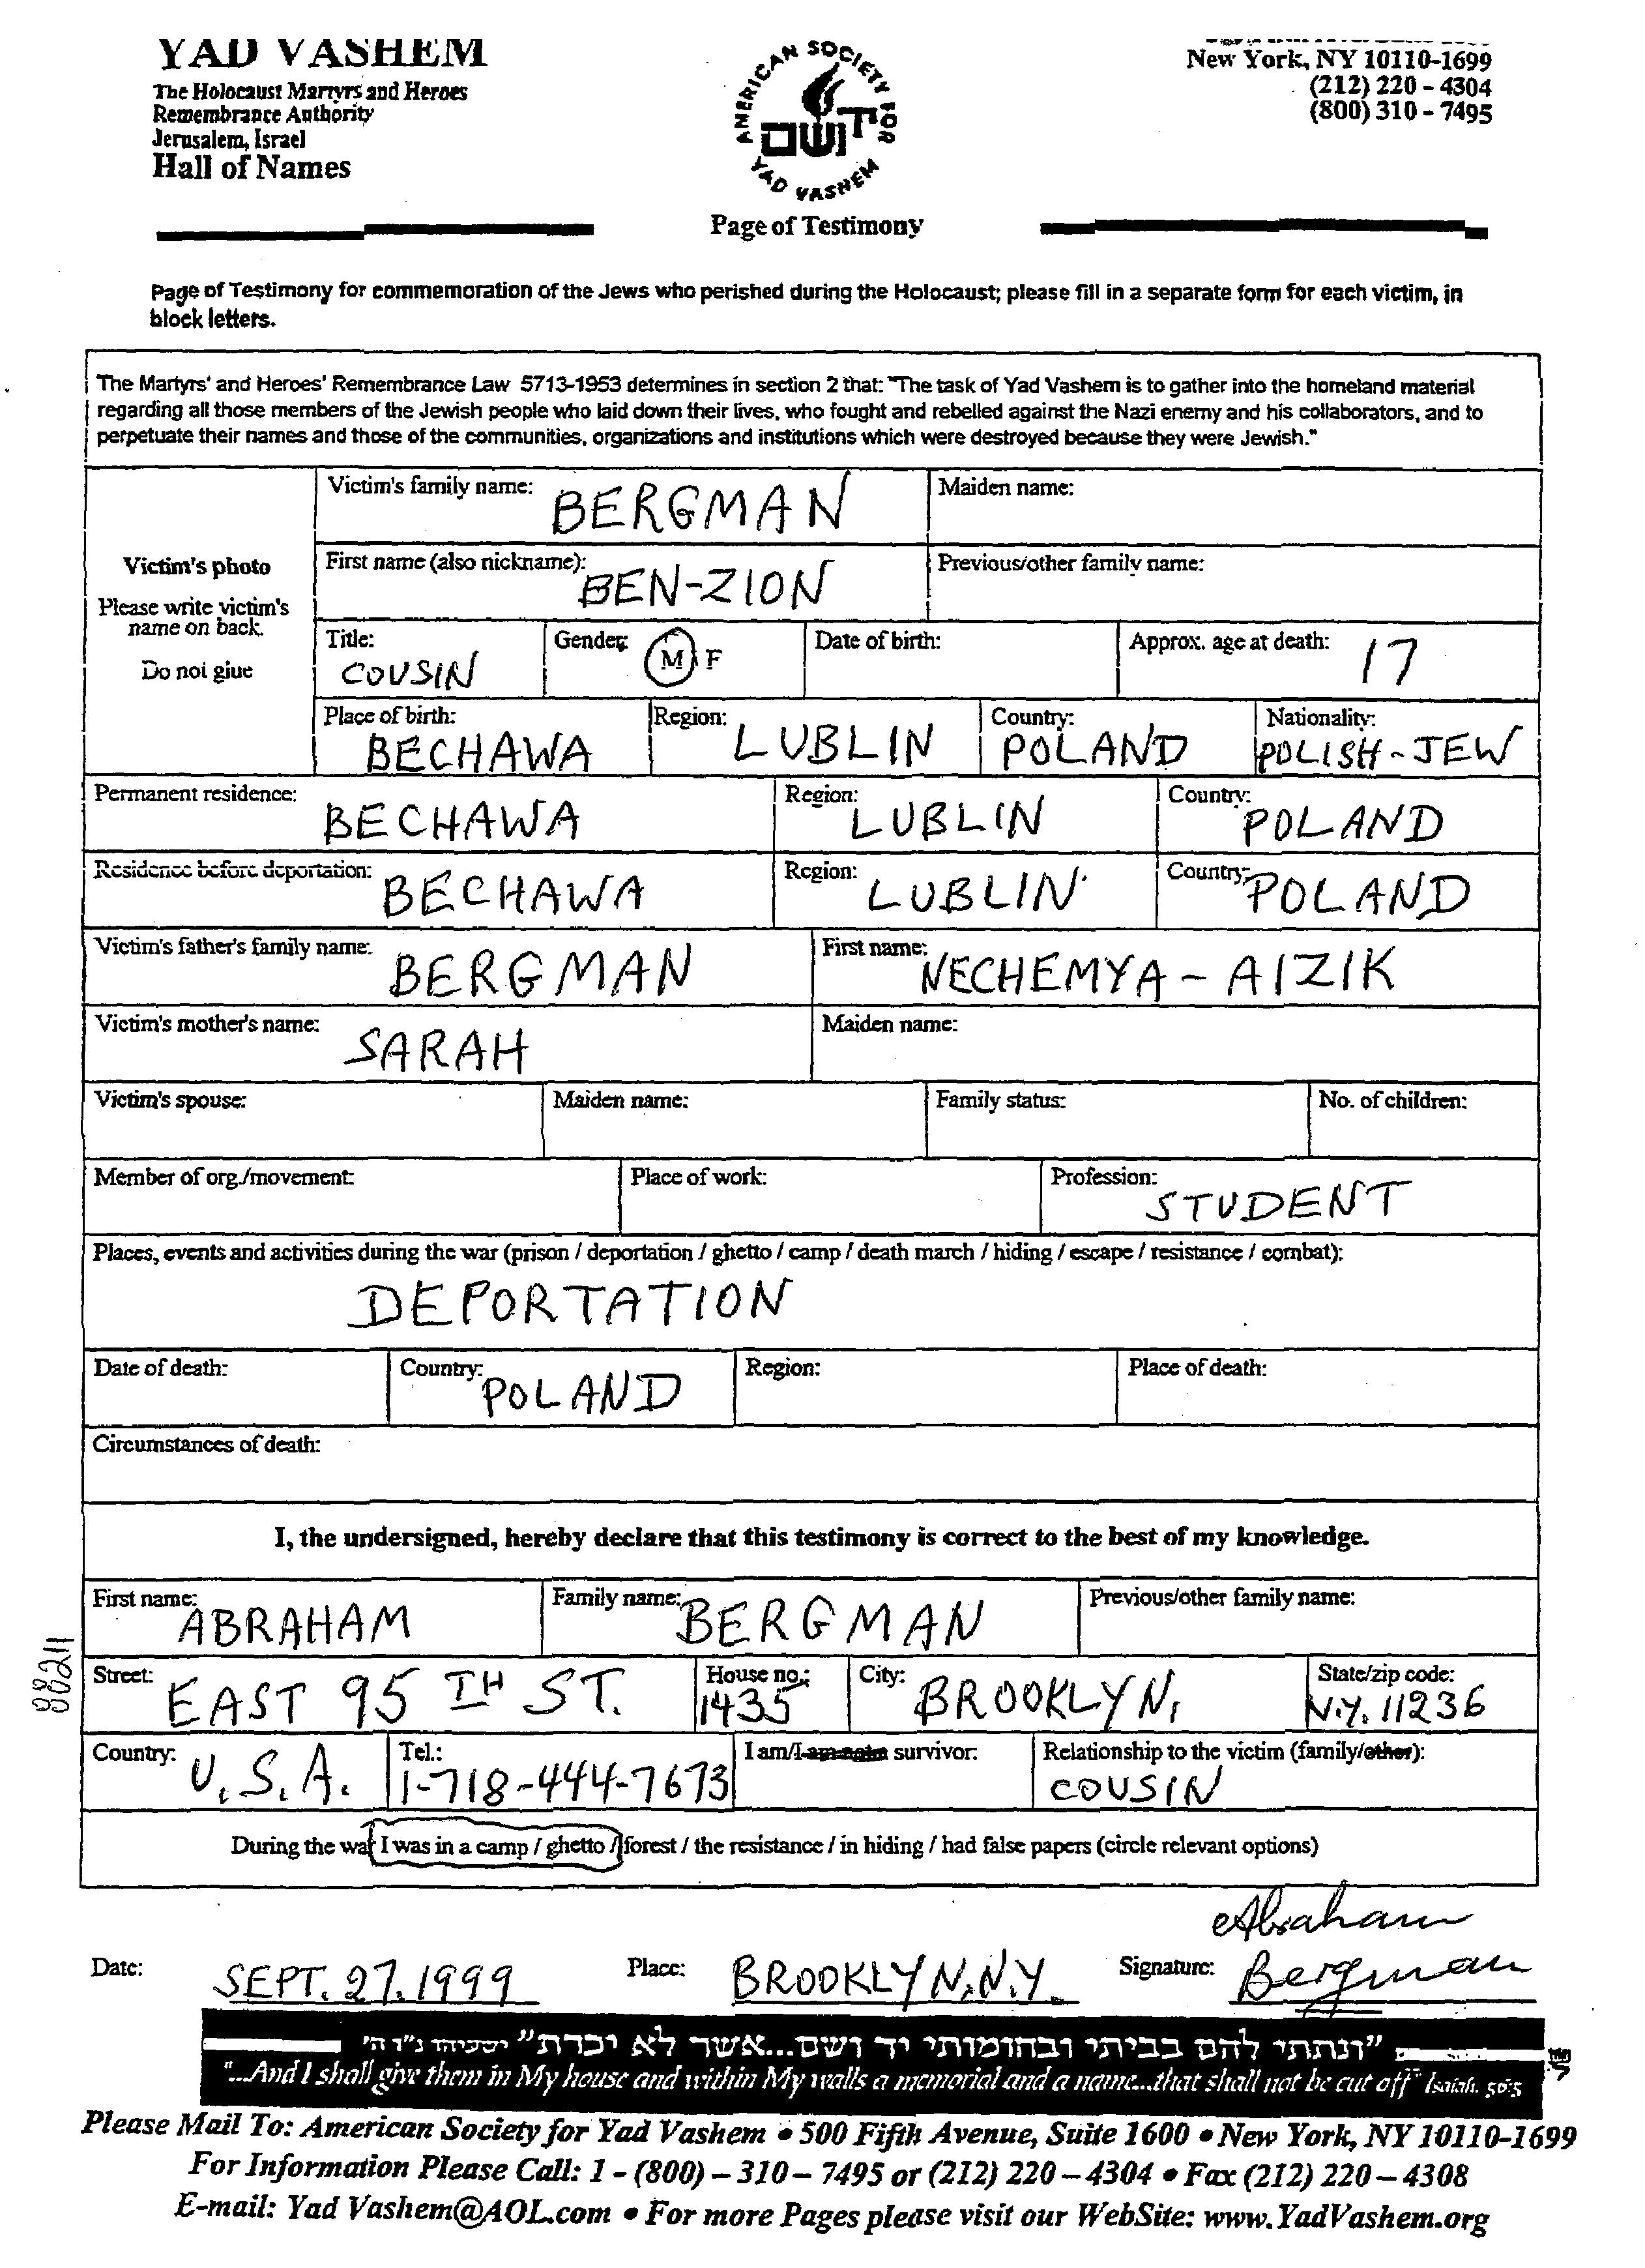 YAD VASHEM
The Holocaust Martyrs and Heroes
Remembrance Authority
Jerusalem, Israel
Hall of Names
AMERICAN SOCIETY FOR
יד ושם
YAD VASHEM
Page of Testimony
New York, NY 10110-1699
(212) 220 - 4304
(800) 310 - 7495
Page of Testimony for commemoration of the Jews who perished during the Holocaust; please fill in a separate form for each victim, in
block letters.
The Martyrs' and Heroes' Remembrance Law 5713-1953 determines in section 2 that: "The task of Yad Vashem is to gather into the homeland material
regarding all those members of the Jewish people who laid down their lives, who fought and rebelled against the Nazi enemy and his collaborators, and to
perpetuate their names and those of the communities, organizations and institutions which were destroyed because they were Jewish."
Victim's photo
Please write victim's
name on back.
Do not glue
Victim's family name: BERGMAN Maiden name:
First name (also nickname): BEN-ZION Previous/other family name:
Title: COUSIN Gender: M F Date of birth: Approx. age at death: 17
Place of birth: BECHAWA Region: LUBLIN Country: POLAND Nationality: POLISH-JEW
Permanent residence: BECHAWA Region: LUBLIN Country: POLAND
Residence before deportation: BECHAWA Region: LUBLIN Country: POLAND
Victim's father's family name: BERGMAN First name: NECHEMYA - AIZIK
Victim's mother's name: SARAH Maiden name:
Victim's spouse: Maiden name: Family status: No. of children:
Member of org./movement: Place of work: Profession: STUDENT
Places, events and activities during the war (prison / deportation / ghetto / camp / death march / hiding / escape / resistance / combat):
DEPORTATION
Date of death: Country: POLAND Region: Place of death:
Circumstances of death:
I, the undersigned, hereby declare that this testimony is correct to the best of my knowledge.
First name: ABRAHAM Family name: BERGMAN Previous/other family name:
Street: EAST 95 TH ST. House no.: 1435 City: BROOKLYN, State/zip code: N.Y. 11236
Country: U.S.A. Tel.: 1-718-444-7673 I am/I am not a survivor: Relationship to the victim (family/other): COUSIN
During the war I was in a camp / ghetto / forest / the resistance / in hiding / had false papers (circle relevant options)
88211
Date: SEPT. 27. 1999 Place: BROOKLYN, N.Y. Signature: Abraham Bergman
"ונתתי להם בביתי ובחומותי יד ושם...אשר לא יכרת" ישעיהו נ"ו ה'
"...And I shall give them in My house and within My walls a memorial and a name...that shall not be cut off" Isaiah. 56:5
Please Mail To: American Society for Yad Vashem • 500 Fifth Avenue, Suite 1600 • New York, NY 10110-1699
For Information Please Call: 1 - (800) – 310 – 7495 or (212) 220 – 4304 • Fax (212) 220 – 4308
E-mail: Yad Vashem@AOL.com • For more Pages please visit our WebSite: www.YadVashem.org